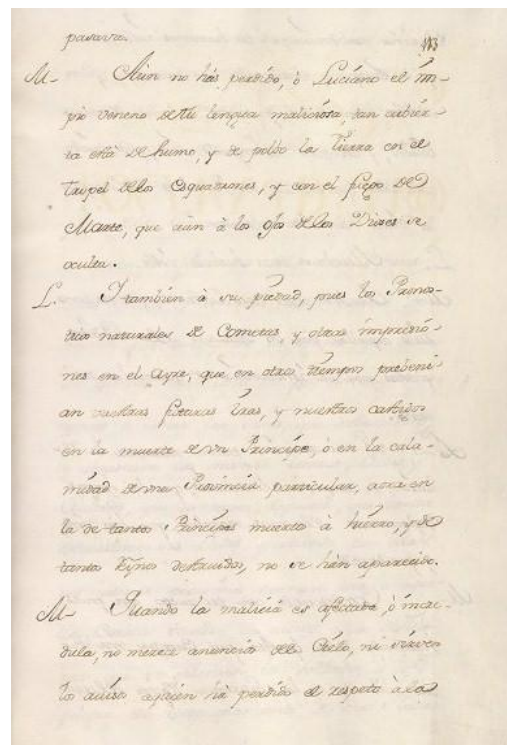 pasava.
113
M- Aun no hás perdido, ò Luciano el im-
pio veneno de tu lengua maliciosa, tan cubier-
ta está de humo, y de polbo la Tierra con el
tropel de los Esquadrones, y con el fuego de
Marte, que aun à los ojos de los Dioses se
oculta.
L. I también à su piedad, pues los Pronos-
ticos naturales de Cometas, y otras impresio-
nes en el Ayre, que en otros tiempos preveni-
an vuestras futuras Iras, y nuestros castigos
en la muerte de un Principe, ò en la cala-
midad de una Provincia particular, aora en
la de tantos Principes muertos à hierro, y de
tantos Rynos destruidos, no se hán aparecido.
M- Quando la malicia es afectada, ò incre-
dula, no merece anuncios del Cielo, ni sirven
los avisos a quien há perdido el respeto à la